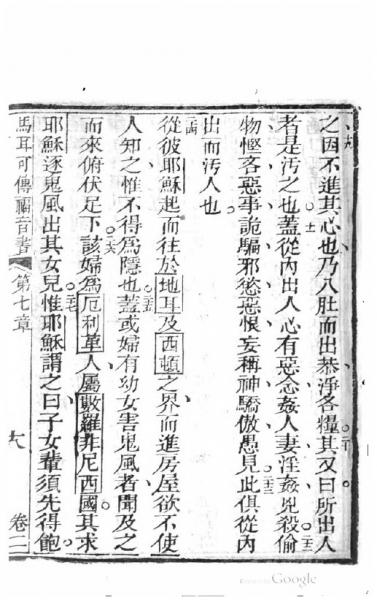 之因不進其心也乃入肚而出恭淨各糧其又曰所出人
者是污之也蓋從內出人心有惡念姦人妻淫姦兇殺偷
物慳吝惡事詭騙邪慾惡恨妄稱神驕傲愚見此俱從內
出而污人也
從彼耶穌起而往於地耳及西頓之界而進房屋欲不使
人知之惟不得為隱也蓋或婦有幼女害鬼風者聞及之
而來俯伏足下該婦為厄利革人屬數羅非尼西國其求
耶穌逐鬼風出其女兒惟耶穌謂之曰子女輩須先得飽
馬耳可傳福音書 第七章 卷二
Google